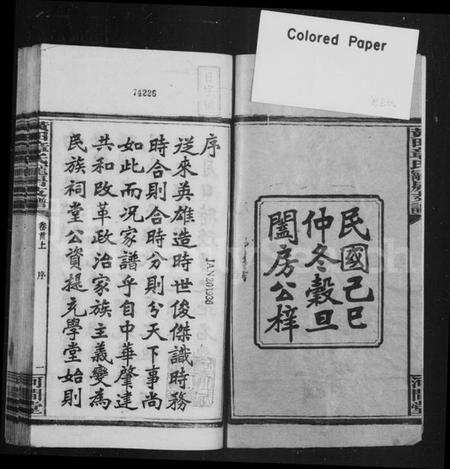 Colored Paper
74226
JAN 30 1939
民國己巳
仲冬穀旦
闔房公梓
序
從來英雄造時世俊傑識時務
時合則合時分則分天下事尚
如此而况家譜乎自中華肇建
共和政革政治家族主義變為
民族祠堂公資提充學堂始則
卷首上
序
一
河間堂